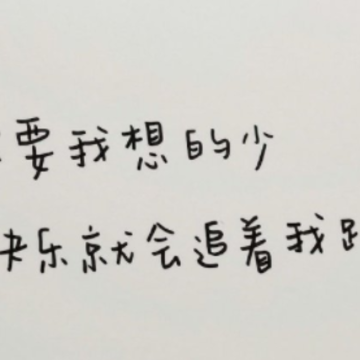 要我想的少
快乐就会追着我